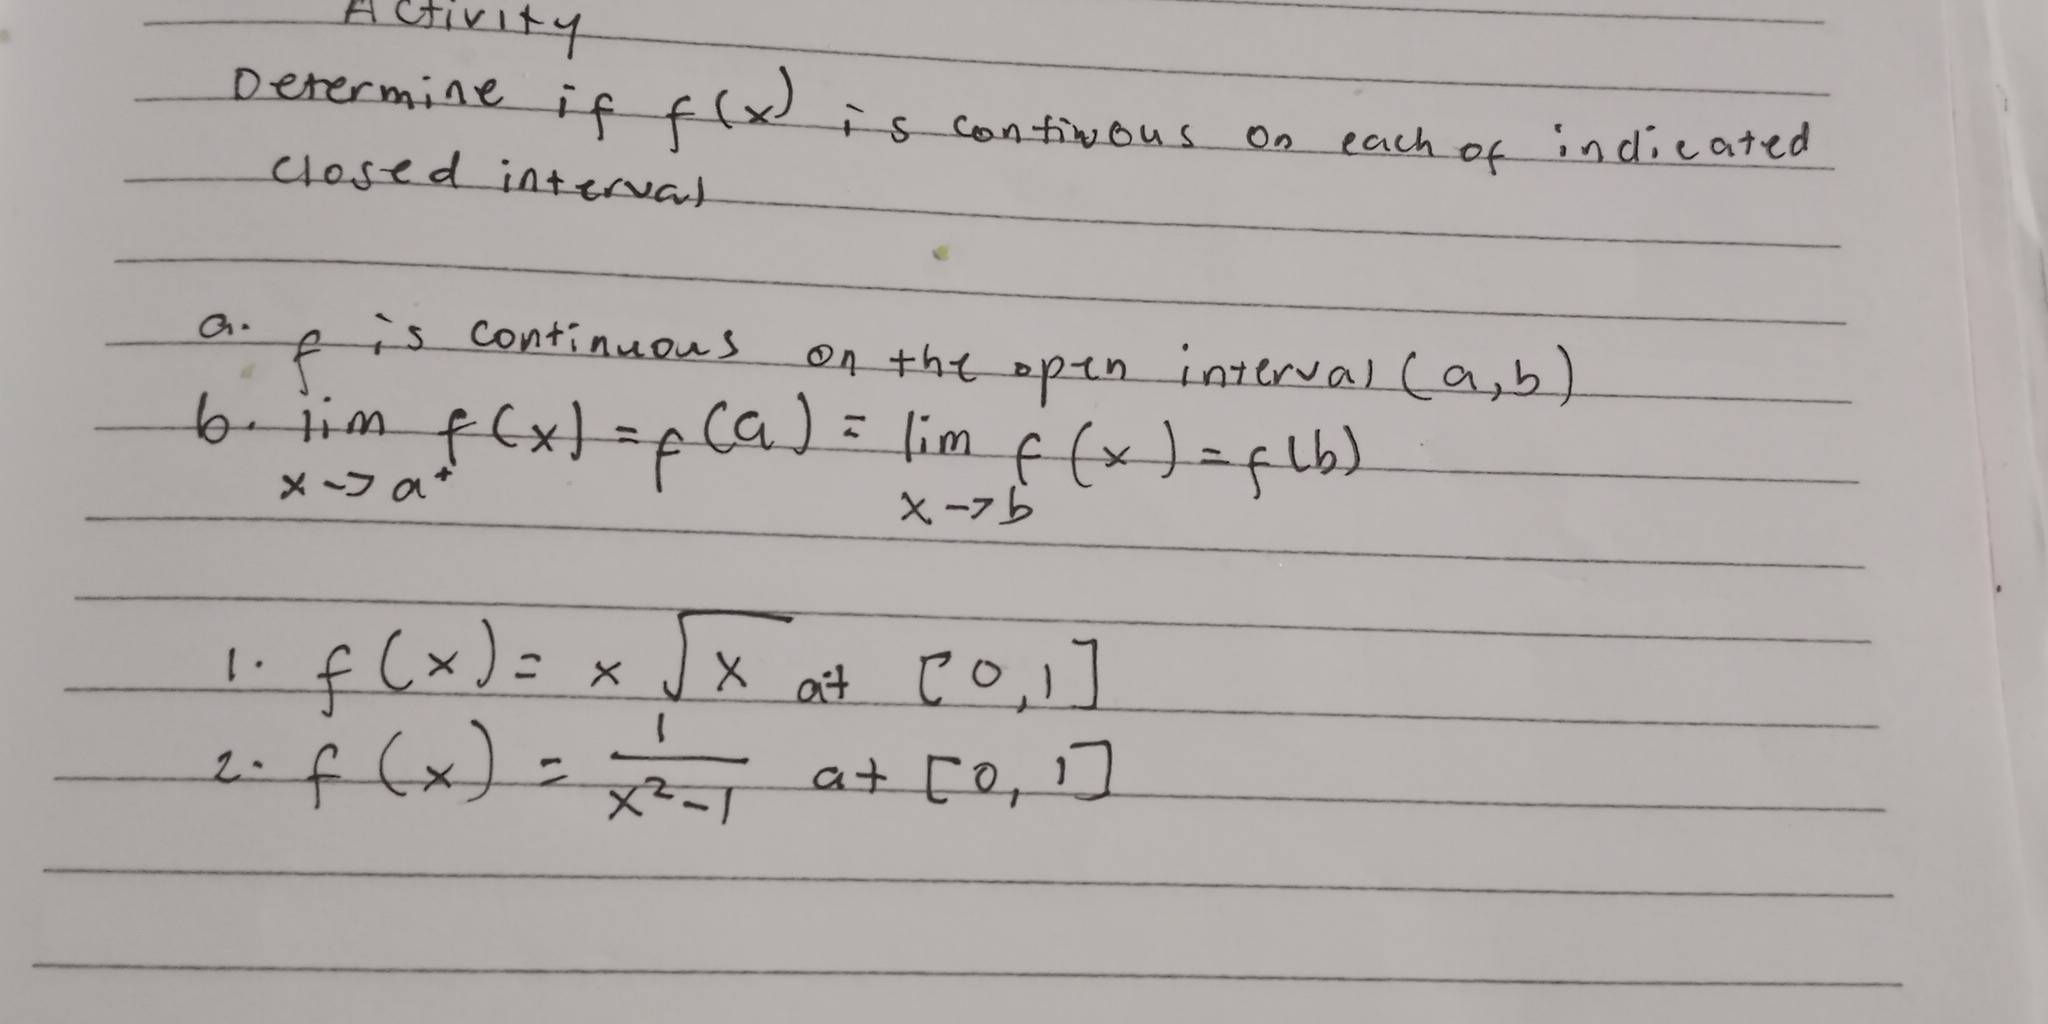 Activity
Determine if f(x) is continous on each of indicated
closed interval
a. f is continuous on the open interval (a,b)
b. lim f(x) = f(a) = lim f(x) = f(b)
x → a⁺ x → b
1. f(x) = x √x at [0,1]
2. f(x) = 1/(x²-1) at [0,1]